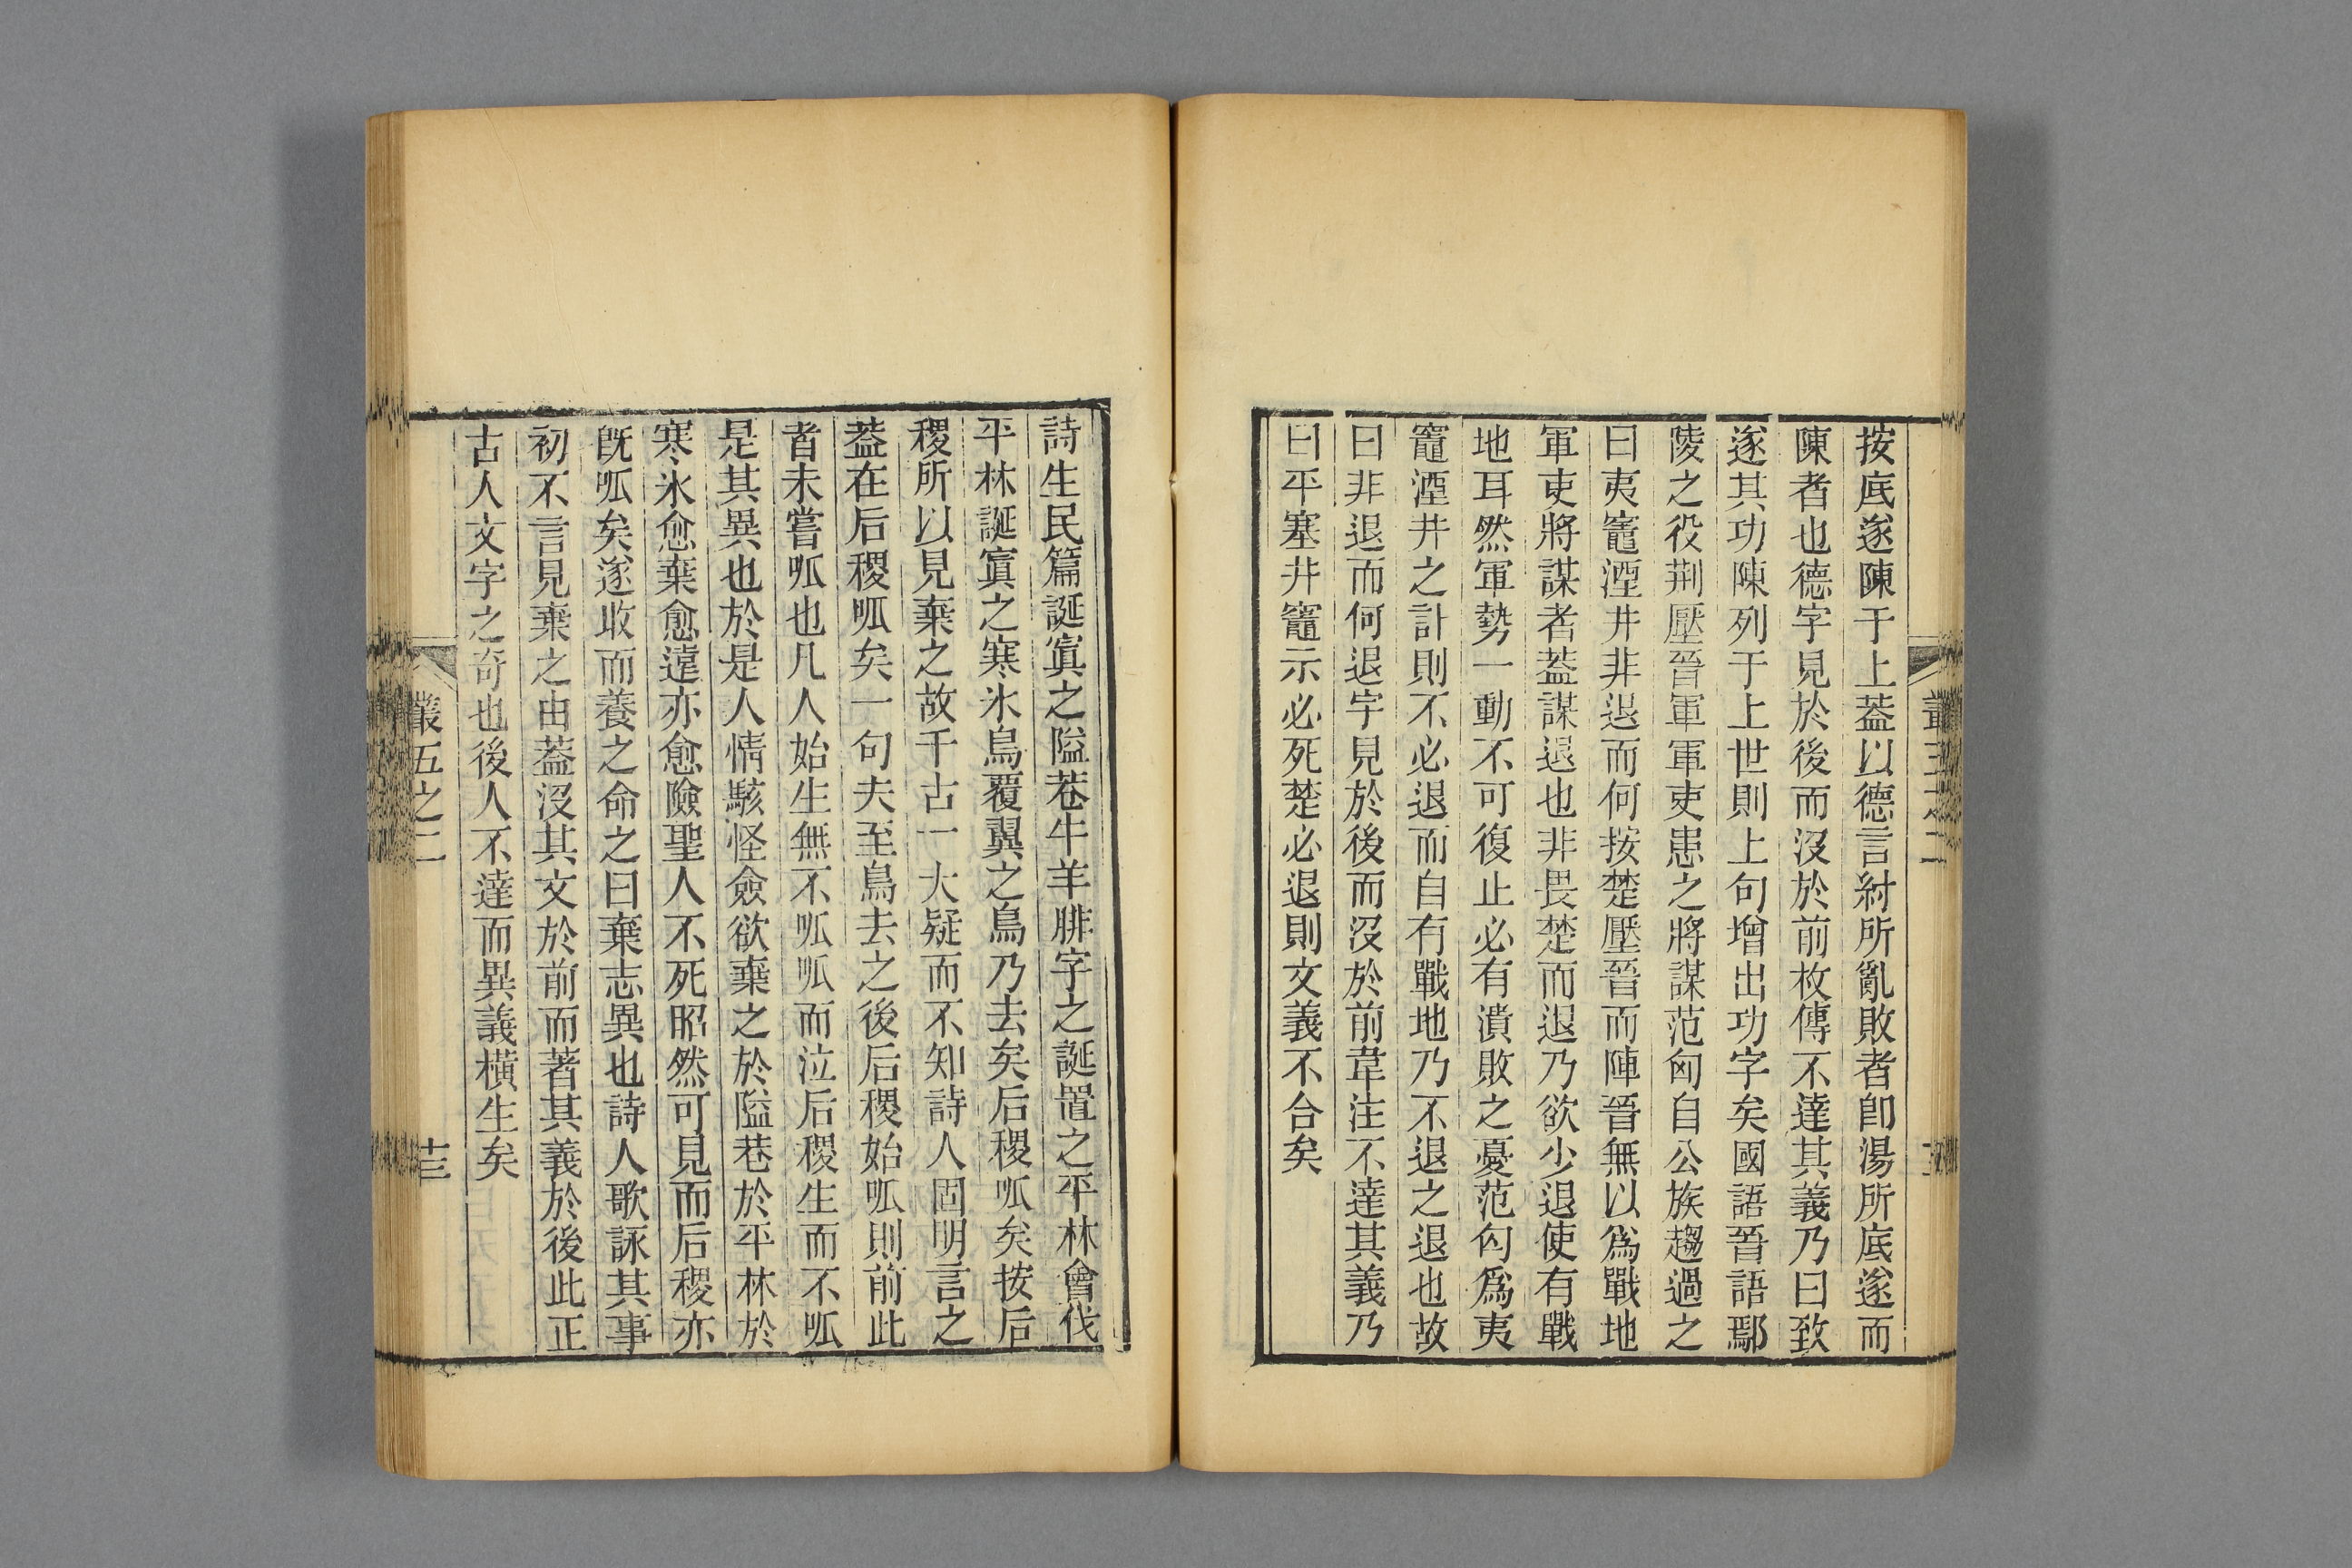 按底遂陳于上葢以德言紂所亂敗者卽湯所底遂而
陳者也德字見於後而沒於前枚傳不達其義乃曰致
遂其功陳列于上世則上句增出功字矣國語晉語鄢
陵之役荆壓晉軍軍吏患之將謀范匄自公族趨過之
曰夷竈湮井非退而何按楚壓晉而陣晉無以爲戰地
軍吏將謀者葢謀退也非畏楚而退乃欲少退使有戰
地耳然軍勢一動不可復止必有潰敗之憂范匄爲夷
竈湮井之計則不必退而自有戰地乃不退之退也故
曰非退而何退字見於後而沒於前韋注不達其義乃
曰平塞井竈示必死楚必退則文義不合矣
詩生民篇誕寘之隘巷牛羊腓字之誕置之平林會伐
平林誕寘之寒氷鳥覆翼之鳥乃去矣后稷呱矣按后
稷所以見棄之故千古一大疑而不知詩人固明言之
葢在后稷呱矣一句夫至鳥去之後后稷始呱則前此
者未嘗呱也凡人始生無不呱呱而泣后稷生而不呱
是其異也於是人情駭怪僉欲棄之於隘巷於平林於
寒氷愈棄愈遠亦愈險聖人不死昭然可見而后稷亦
旣呱矣遂收而養之命之曰棄志異也詩人歌詠其事
初不言見棄之由葢沒其文於前而著其義於後此正
古人文字之奇也後人不達而異義橫生矣
叢五之二
十三